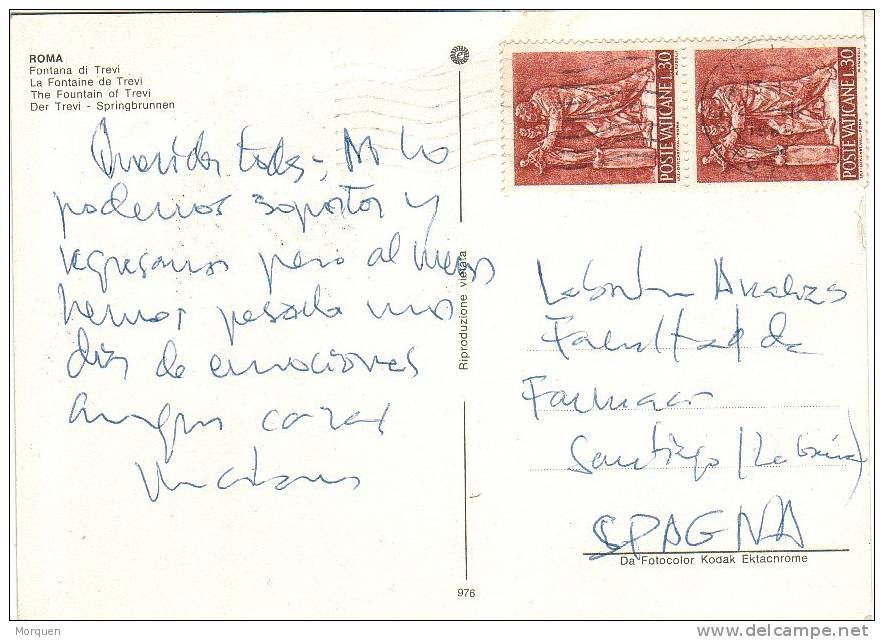 ROMA
Fontana di Trevi
La Fontaine de Trevi
The Fountain of Trevi
Der Trevi - Springbrunnen
Querida todas, lo
podemos soportar y
regresamos pero al menos
hemos pasado unos
días de emociones
Riproduzione vietata
POSTE VATICANE L.30
POSTE VATICANE L.30
Facultad de
Farmacia
Santiago
SPAGNA
Da Fotocolor Kodak Ektachrome
976
Morquen
delcampe.net